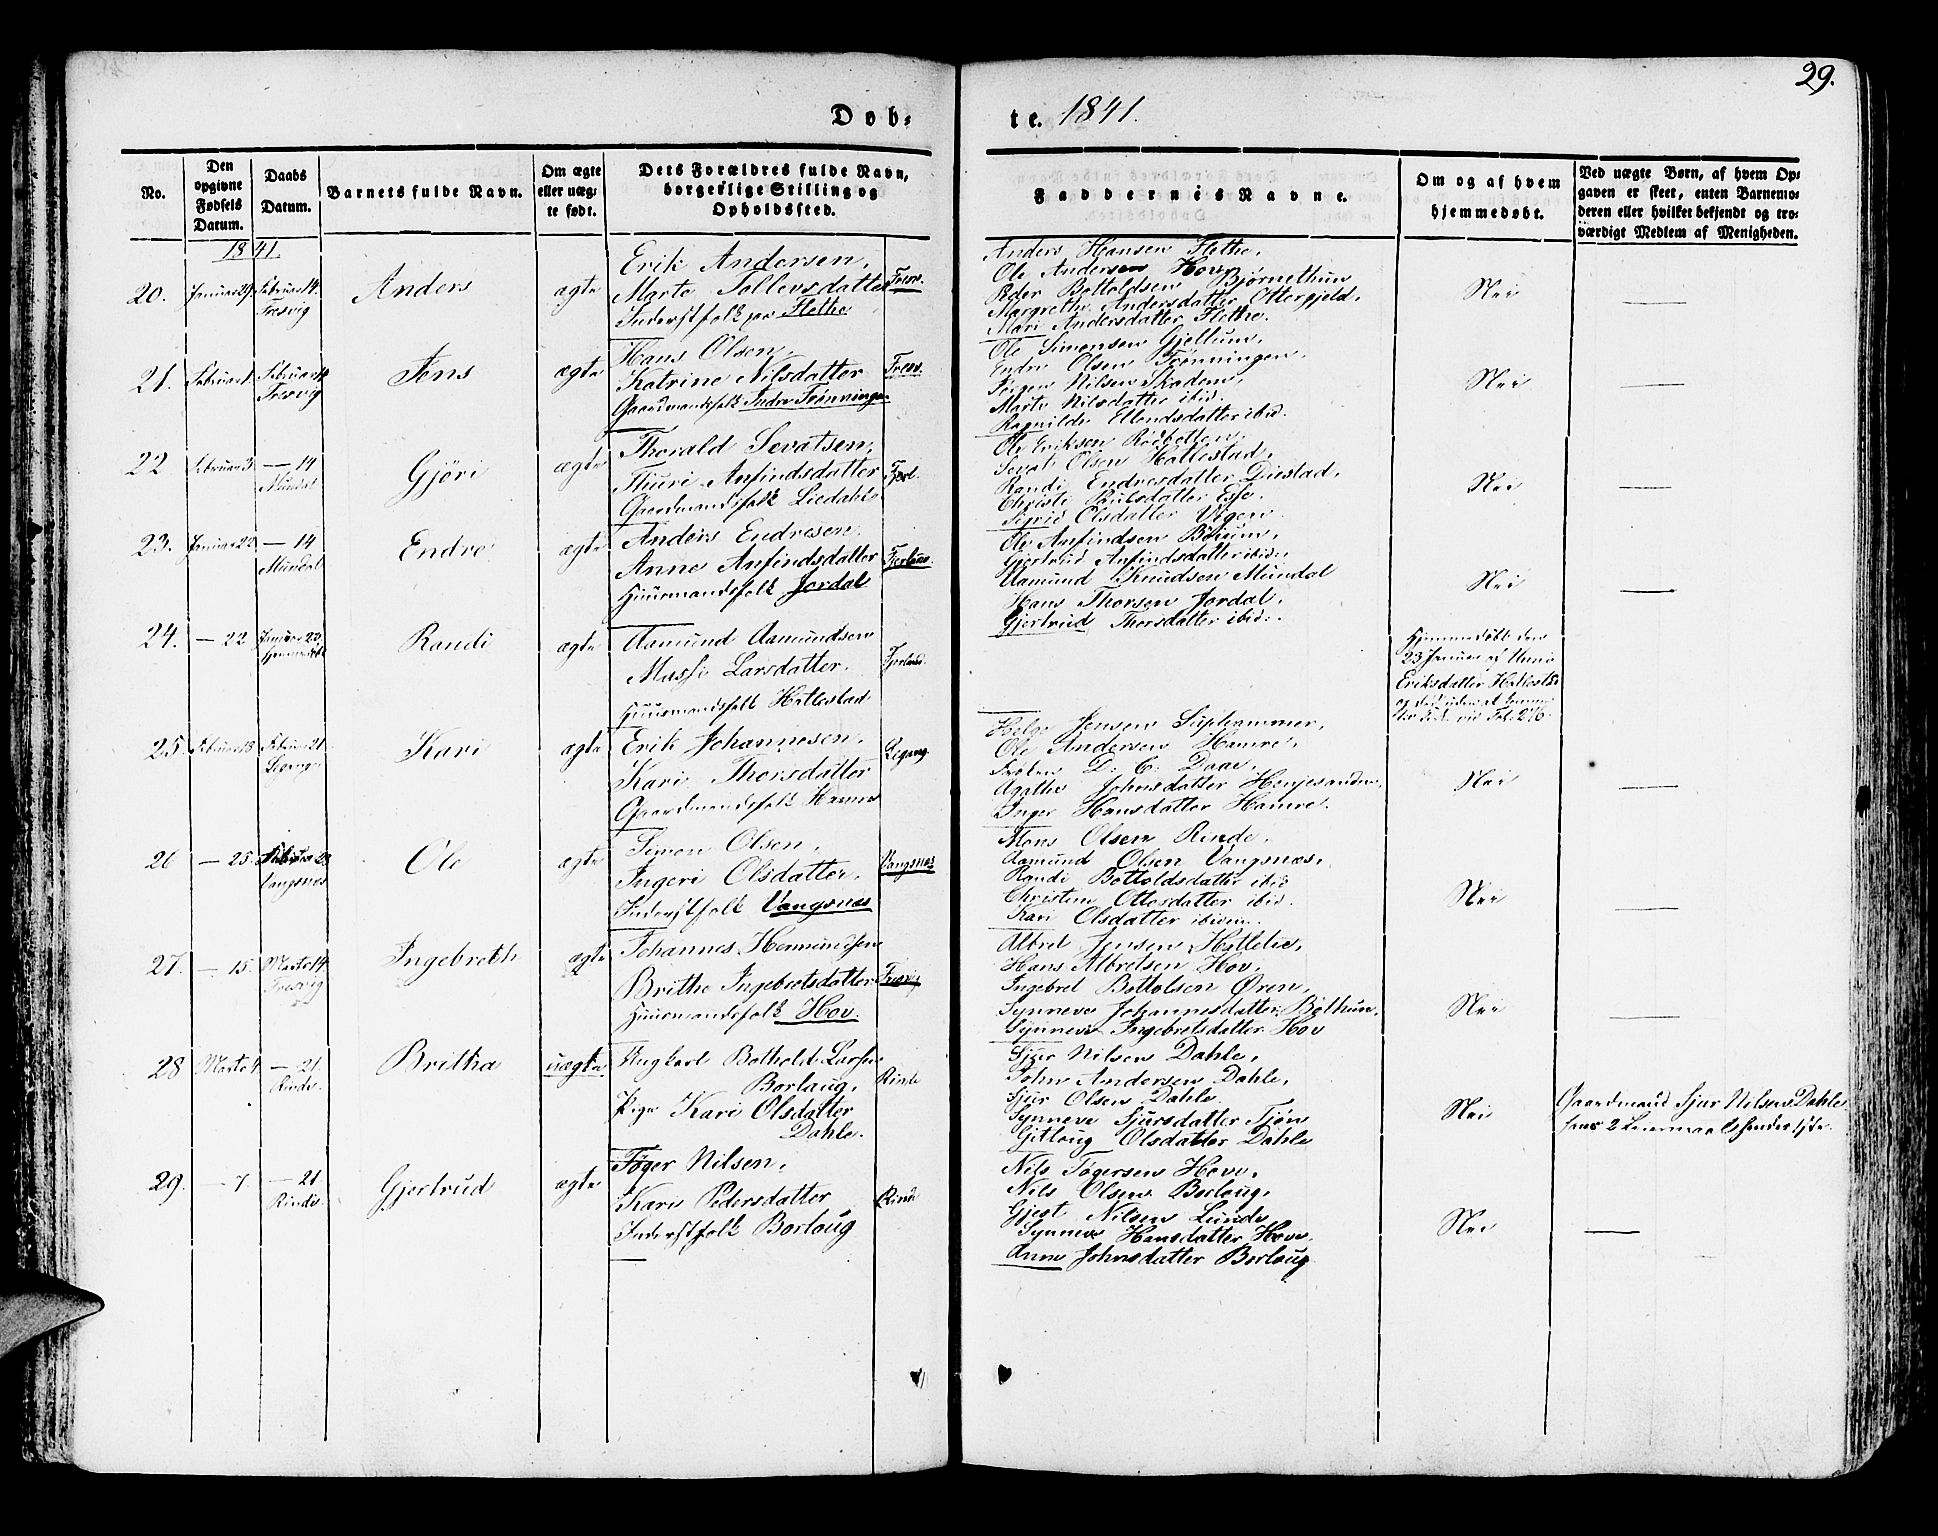 29.
Døb=
te. 1841.
No.
Den opgivne Fødsels Datum.
Daabs Datum.
Barnets fulde Navn.
Om ægte eller uæg= te født.
Dets Forældres fulde Navn, borgerlige Stilling og Opholdssted.
Faddernis Navne.
Om og af hvem hjemmedøbt.
Ved uægte Børn, af hvem Op= gaven er skeet, enten Barnemo= deren eller hvilket bekjendt og tro= værdigt Medlem af Menigheden.
1841.
20. Januar 29. Februar 14. Fresvig
Anders
ægte
Erik Andersen,
Marte Tollevsdatter
Inderstfolk paa Flethe
Fresv.
Anders Hansen Flethe,
Ole Andersen Hov,
Peder Bottoldsen Bjørnethun
Margrethe Andersdatter Ottergjeld,
Mari Andersdatter Flethe.
Nei
21. Februar 1. Februar 14 Fresvig
Jens
ægte
Hans Olsen,
Katrine Nilsdatter
Gaardmandsfolk Indre Frønningen
Fresv.
Ole Simonsen Gjellum,
Endre Olsen Frønningen,
Jørgen Nilsen Skadem,
Marte Nilsdatter ibid.
Ragnilde Ellendsdatter ibid.
Nei
22 Februar 3. — 14 Mundal
Gjöri
ægte
Thorald Sevatsen,
Thuri Anfindsdatter
Gaardmandsfolk Liedahl
Fjerl.
Ole Eriksen Rødbotten,
Sevat Olsen Hatlestad,
Randi Endresdatter Distad,
Christi Nilsdatter Esse,
Sigrid Olsdatter Vigen
Nei
23. Januar 22 — 14 Mundal
Endre
ægte
Anders Endresen,
Anne Anfindsdatter
Huusmandsfolk Jordal
Fjerland.
Ole Anfindsen Böium,
Gjertrud Anfindsdatter ibid.,
Aamund Knudsen Mundal
Hans Thorsen Jordal,
Gjertrud Thorsdatter ibid.
Nei
24. — 22 Januar 23. hjemmedøbt
Randi
ægte
Aamund Aamundsen
Massi Larsdatter.
Huusmandsfolk Hatlestad
Fjerland.
Hjemmedøbt den
23 Januar af
Eriksdatter Hatlestad
25. Februar 13 Februar 21.
Kari
ægte
Erik Johannesen,
Kari Thorsdatter
Gaardmandsfolk Hamre
Legang.
Helge Jensen Suphammer,
Ole Andersen Hamre,
D. C. Daae,
Agathe Johnsdatter Henjesanden,
Inger Hansdatter Hamre.
Nei
26 — 25. Vangsnæs
Ole
ægte
Simon Olsen,
Ingeri Olsdatter,
Inderstfolk Vangsnæs
Vangsnæs
Mons Olsen Rinde,
Aamund Olsen Vangsnæs,
Randi Bottoldsdatter ibid
Christine Ottesdatter ibid.
Kari Olsdatter ibidem.
Nei
27. — 15. Marts 14. Fresvig
Ingebreth
ægte
Johannes Hermundsen
Brithe Ingebretsdatter
Huusmandsfolk Hov.
Fresvig
Albret Jensen Hatlelie,
Hans Albretsen Hov,
Ingebret Bottolsen Øren,
Synneve Johannesdatter Bøthun,
Synneve Ingebretsdatter Hov
Nei
28 Marts 4. — 21 Rinde.
Britha
uægte
Ungkarl Botholt Larsen
Borlaug,
Pige Kari Olsdatter
Dahle.
Rinde
Sjur Nilsen Dahle,
John Andersen Dahle,
Sjur Olsen Dahle
Synneve Sjursdatter Tjøn
Gitloug Olsdatter Dahle
Nei
Gaardmand Sjur Nilsen Dahle
29. — 7. — 21 Rinde.
Gjertrud
ægte
Tøger Nilsen,
Kari Pedersdatter
Inderstfolk Borloug
Rinde
Nils Tøgersen Hove,
Nils Olsen Borloug,
Gjest Nilsen Lunde
Synneve Hansdatter Hove,
Anne Johnsdatter Borloug
Nei